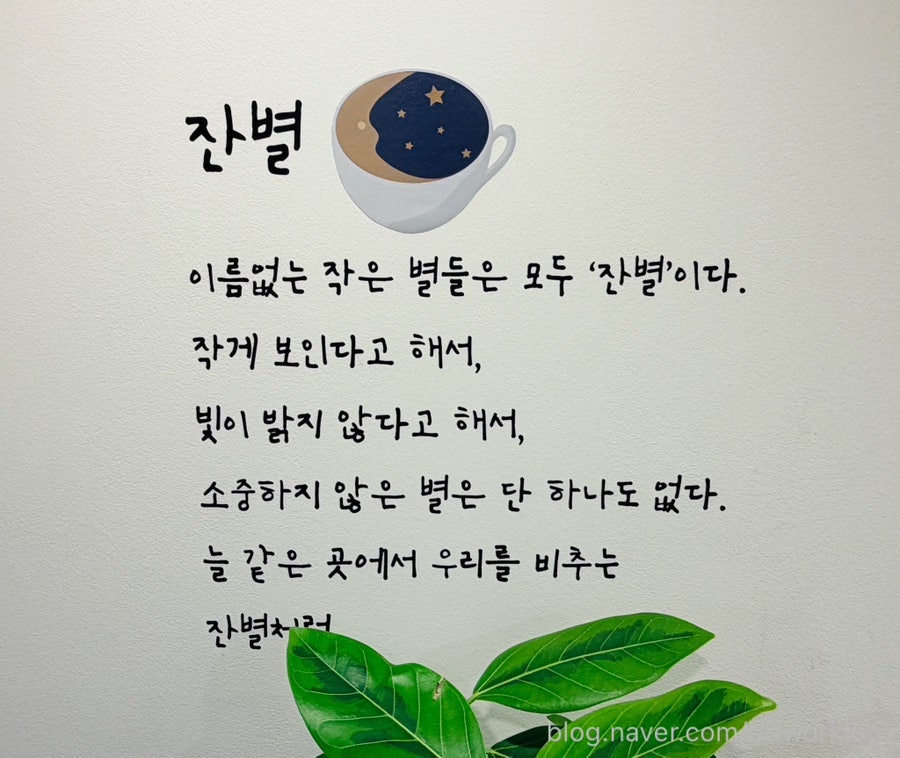 잔별
이름없는 작은 별들은 모두 ‘잔별’이다.
작게 보인다고 해서,
빛이 밝지 않다고 해서,
소중하지 않은 별은 단 하나도 없다.
늘 같은 곳에서 우리를 비추는
잔별처럼
blog.naver.com/